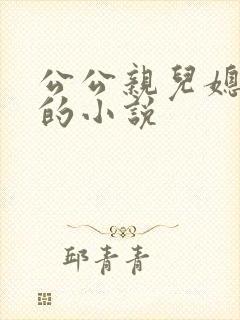 公公親兒媳
的小說
邱青青